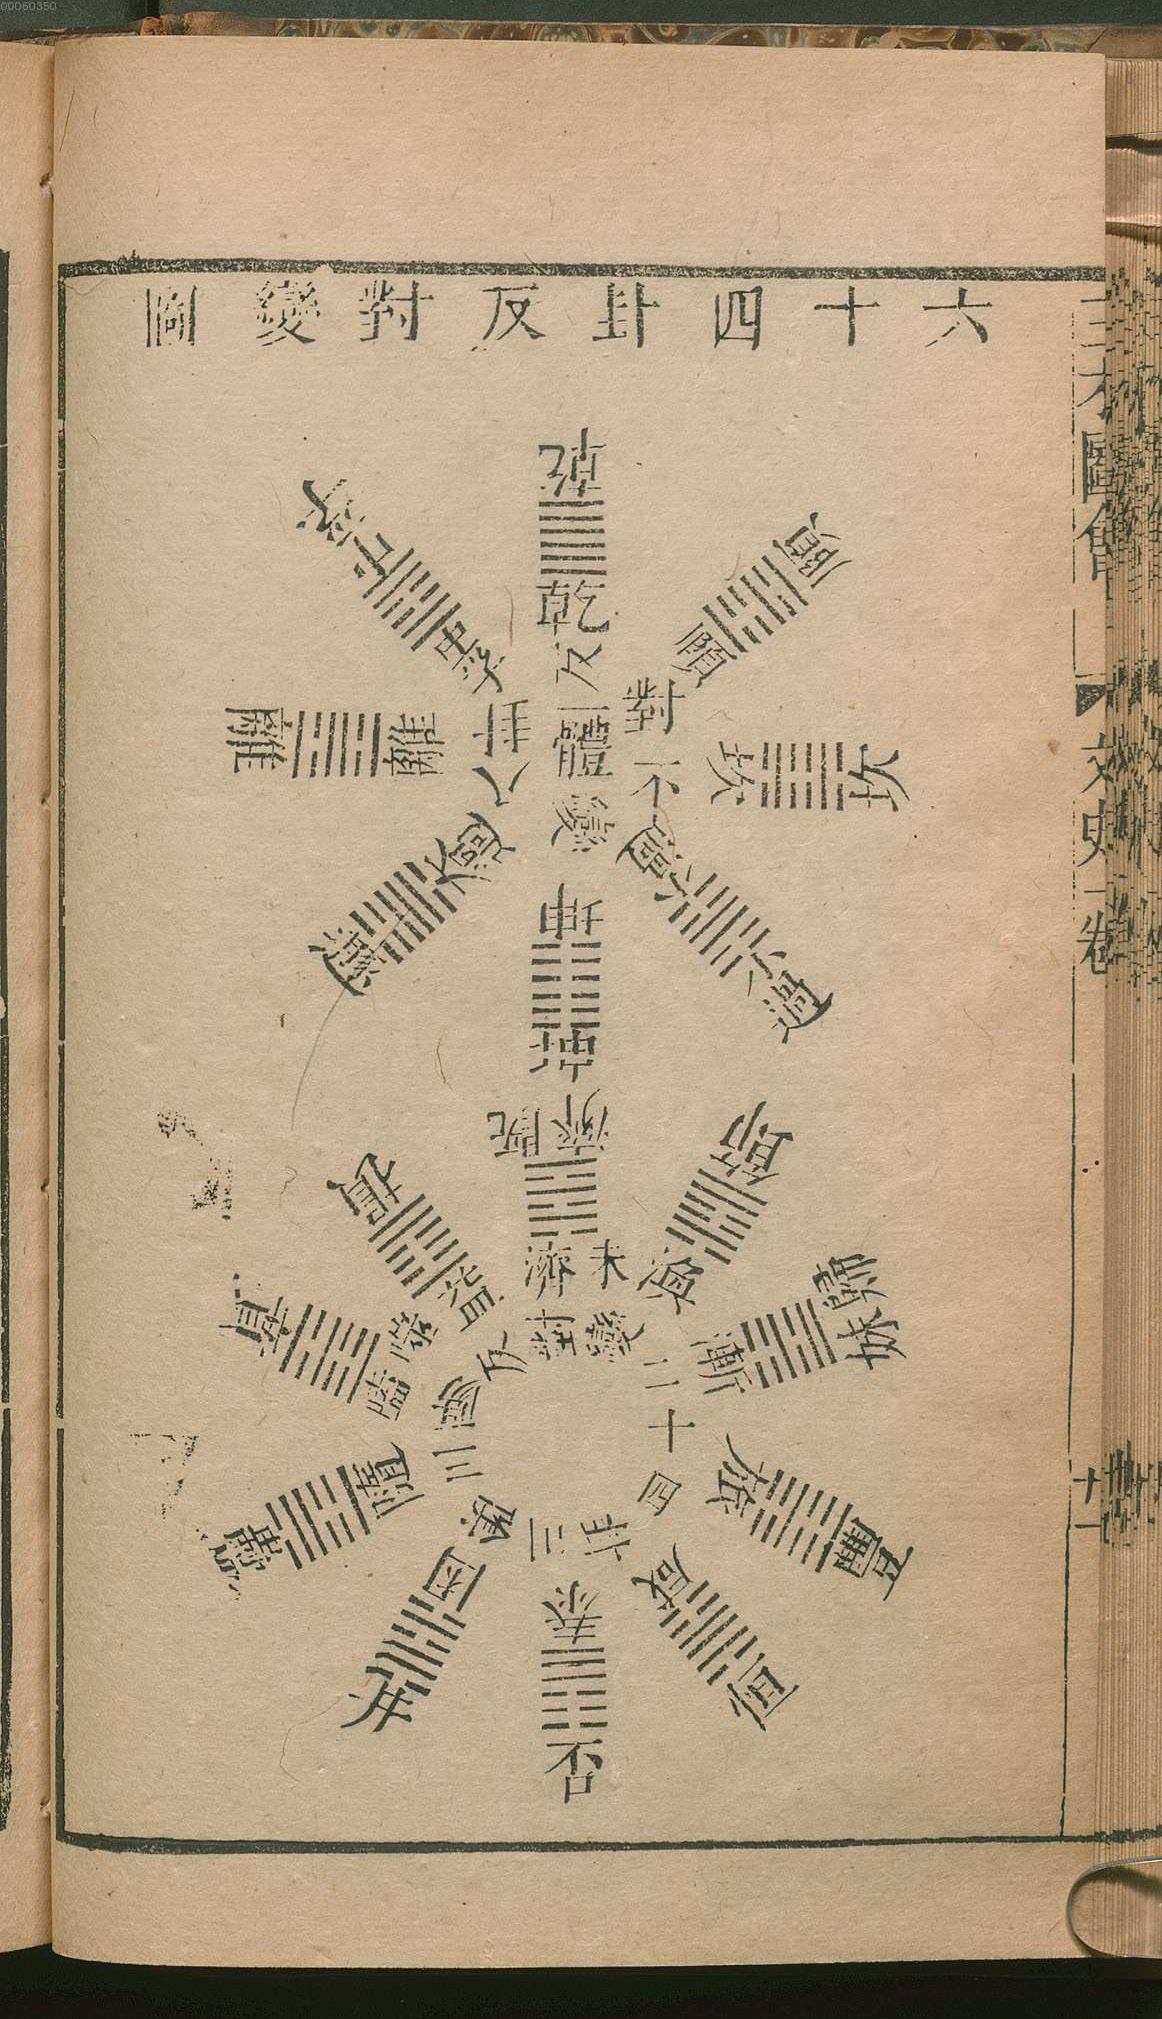 00060350
六十四卦反對變圖
三才圖會
文史一卷
十一
乾
乾
頤
頤
坎
坎
小過
小過
坤
坤
大過
大過
離
離
中孚
中孚
反對不變
一體
八卦
既濟
未濟
節
渙
歸妹
漸
豐
旅
恒
咸
否
泰
井
困
蠱
隨
臨
益
損
反對變二十四卦
三陰三陽